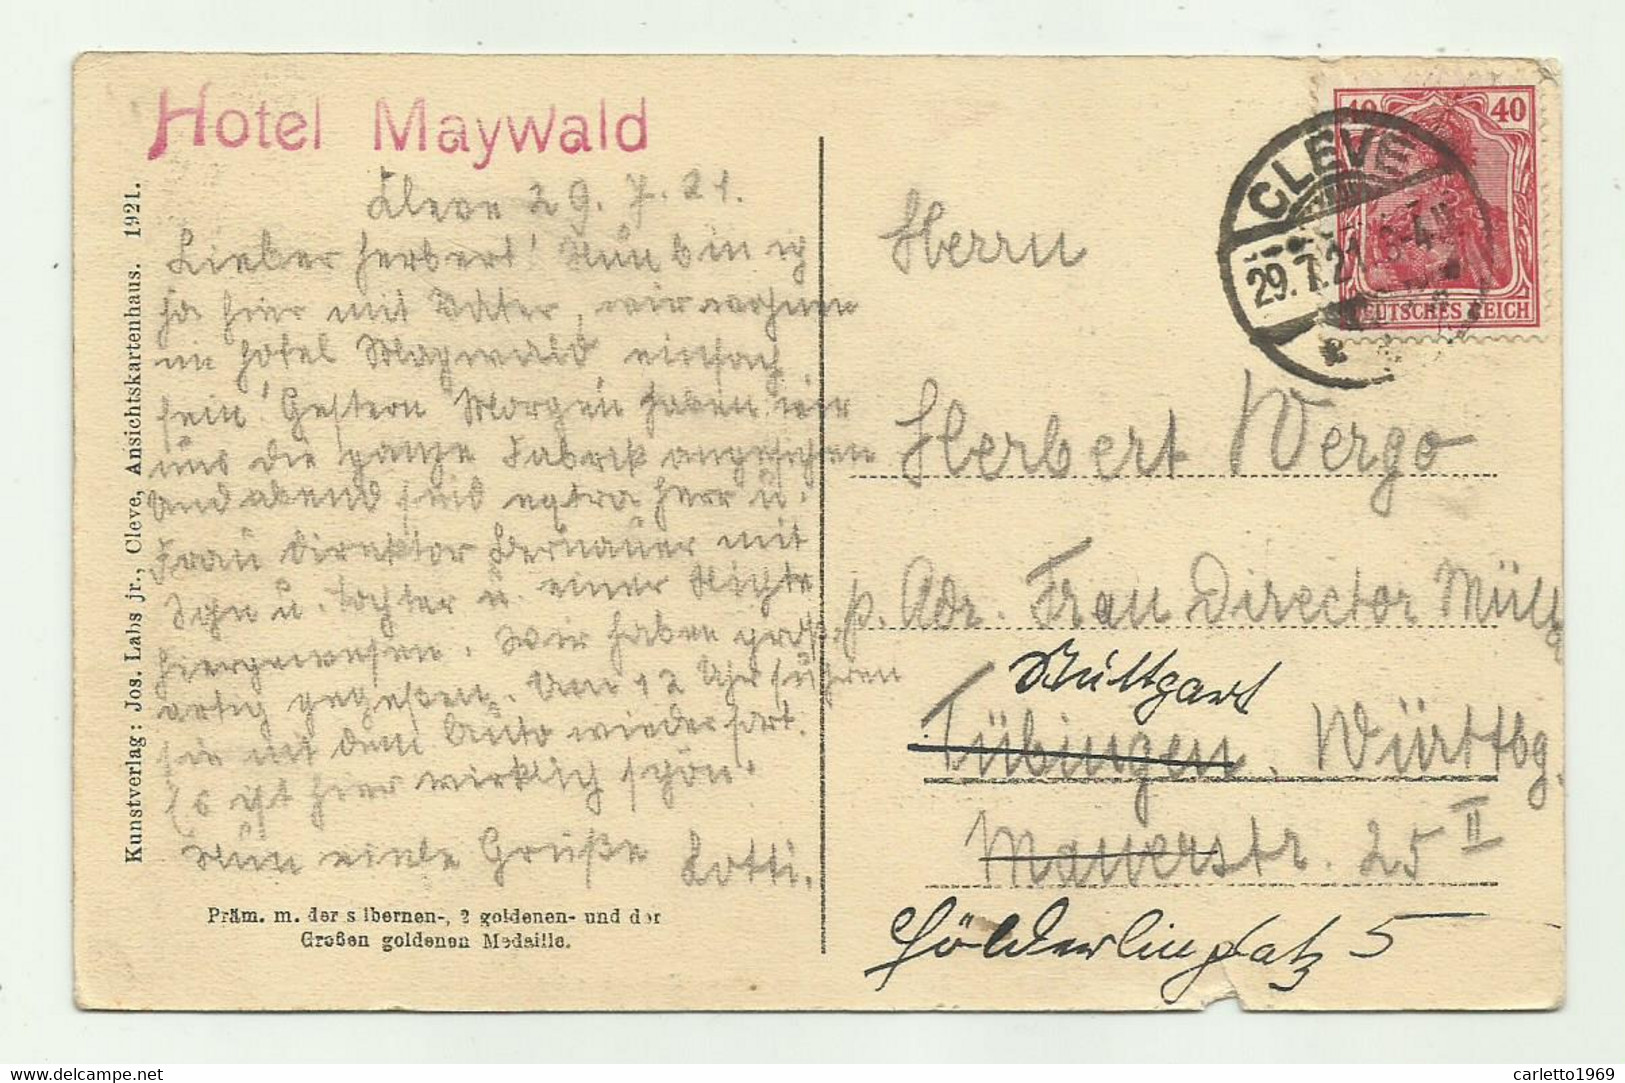 Hotel Maywald
Cleve 29. 7. 21.
Lieber Herbert! Nun bin ich
ja hier mit Vater, wir wohnen
im Hotel Maywald, einfach
fein! Gestern Morgen haben wir
uns die ganze Fabrik angesehen
und abend sind extra Herr u.
Frau Direktor Bernauer mit
Sohn u. Tochter u. einer Nichte
hiergewesen. Wir haben groß-
artig gegessen. Um 12 Uhr fuhren
sie mit dem Auto wieder fort.
Es ist hier wirklich schön.
Nun viele Grüße Lotti.
Präm. m. der silbernen-, 2 goldenen- und der
Großen goldenen Medaille.
Kunstverlag: Jos. Labs jr., Cleve, Ansichtskartenhaus. 1921.
40 40
DEUTSCHES REICH
CLEVE
29.7.21
Herrn
Herbert Wergo
p. Adr. Frau Director Müller
Stuttgart
Tübingen. Württbg.
Mauerstr. 25 II
Hölderlinplatz 5
delcampe.net
carletto1969